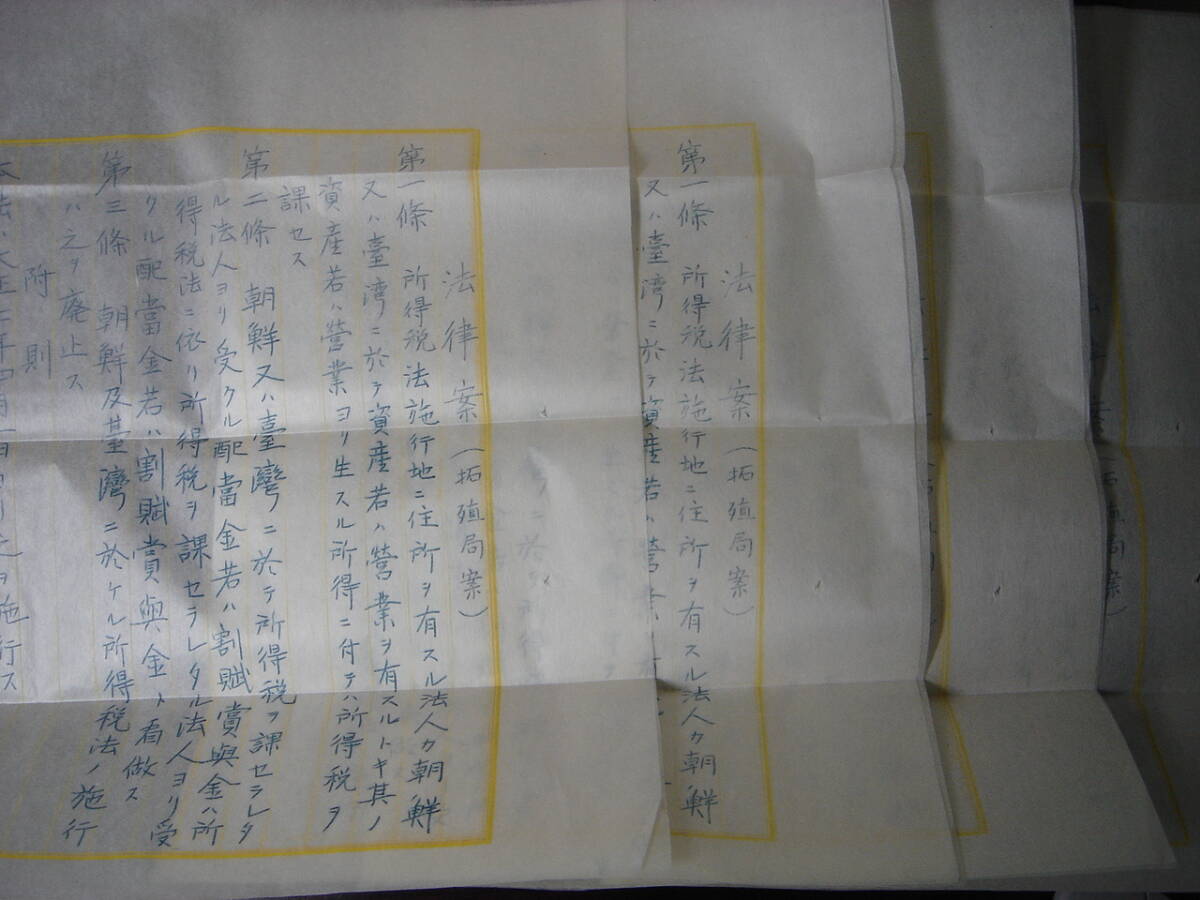 案(拓殖局案)
法律案(拓殖局案)
第一條 所得税法施行地ニ住所ヲ有スル法人カ朝鮮
又ハ臺湾ニ於テ資産若ハ營業
法律案(拓殖局案)
第一條 所得税法施行地ニ住所ヲ有スル法人カ朝鮮
又ハ臺湾ニ於テ資産若ハ營業ヲ有スルトキ其ノ
資産若ハ營業ヨリ生スル所得ニ付テハ所得税ヲ
課セス
第二條 朝鮮又ハ臺灣ニ於テ所得税ヲ課セラレタ
ル法人ヨリ受クル配當金若ハ割賦賞與金ハ所
得税法ニ依リ所得税ヲ課セラレタル法人ヨリ受
クル配當金若ハ割賦賞與金ト看做ス
第三條 朝鮮及臺灣ニ於ケル所得税法ノ施行
ハ之ヲ廃止ス
附則
本法ハ大正 年四月一日ヨリ之ヲ施行ス